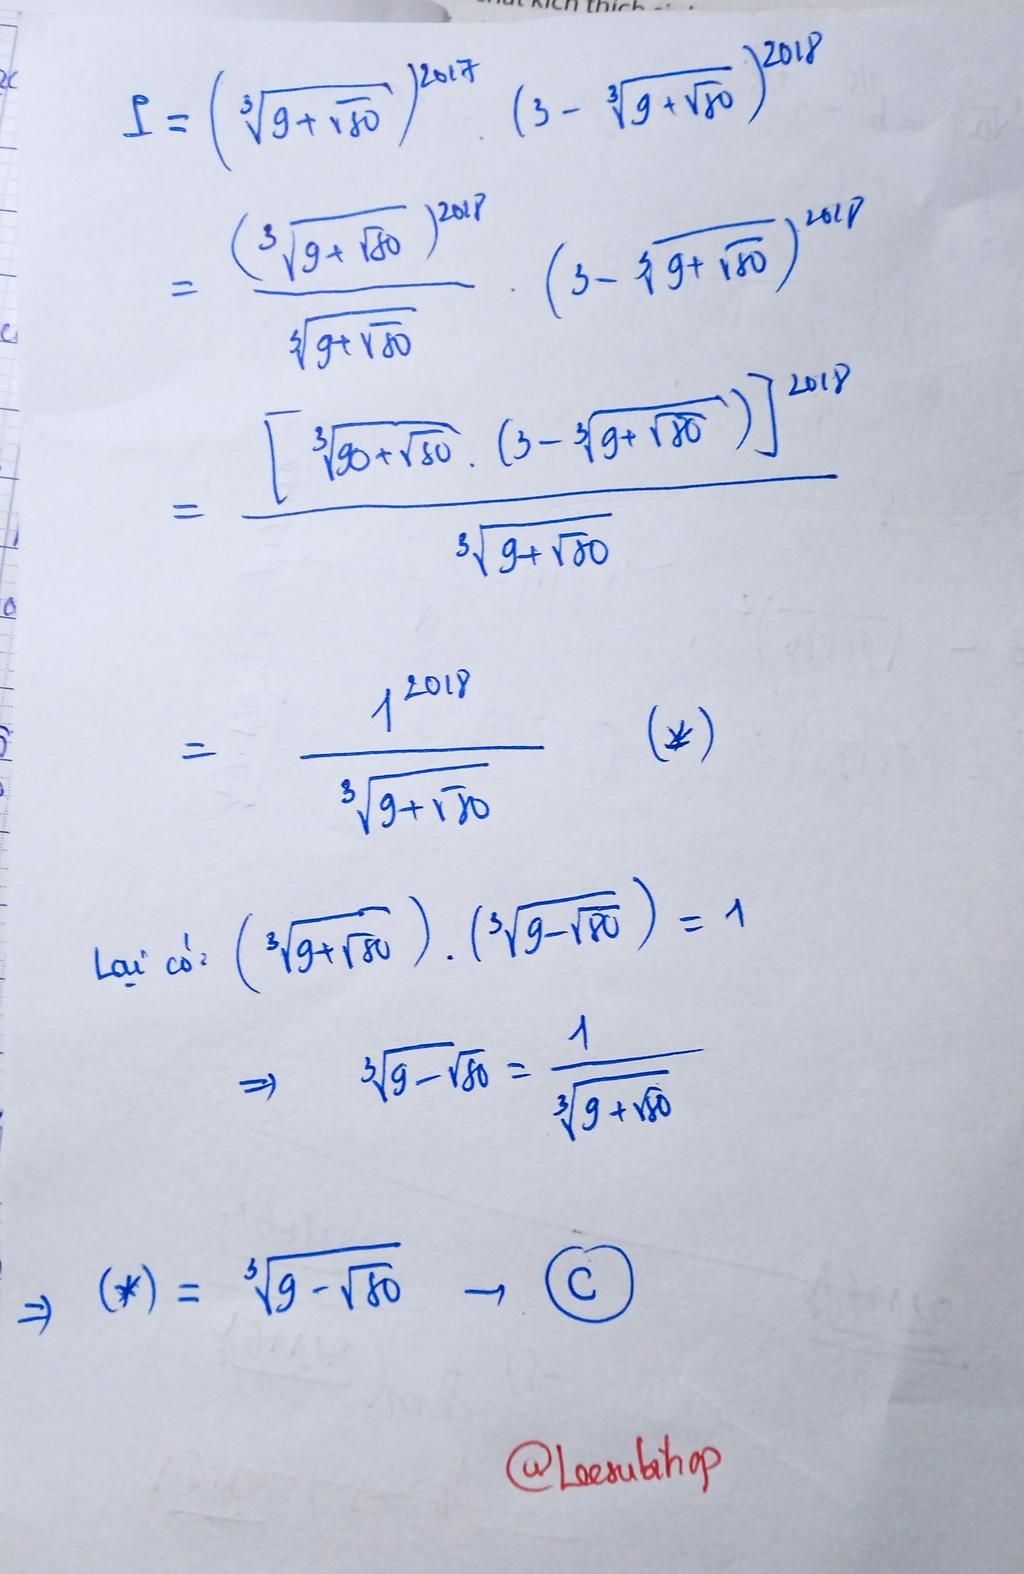 I = (∛(9+√80))^2017 . (3 - ∛(9+√80))^2018
= (∛(9+√80))^2018 / ∛(9+√80) . (3 - ∛(9+√80))^2018
= [∛(90+√80) . (3 - ∛(9+√80))]^2018 / ∛(9+√80)
= 1^2018 / ∛(9+√80) (*)
Lại có: (∛(9+√80)) . (∛(9-√80)) = 1
⇒ ∛(9-√80) = 1 / ∛(9+√80)
⇒ (*) = ∛(9-√80) → C
@Loesubihop